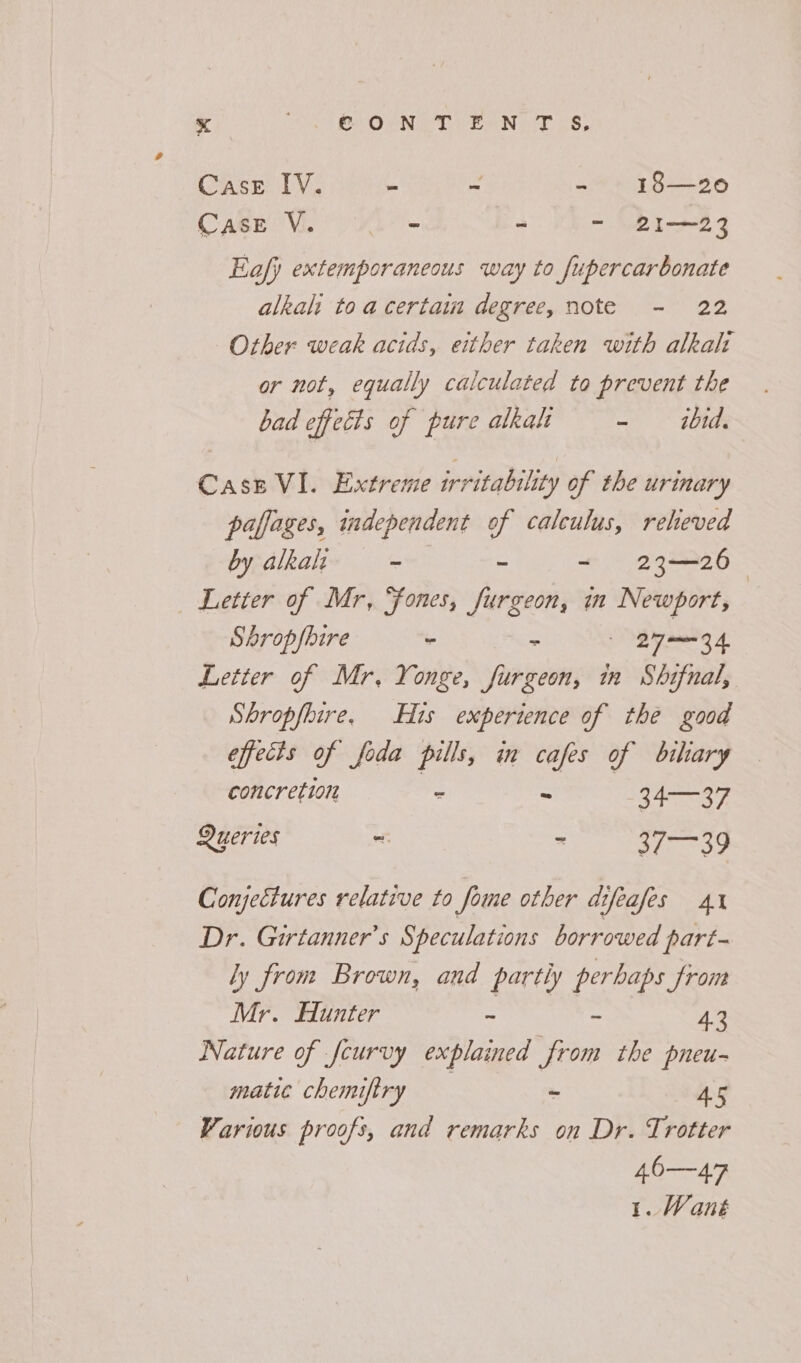 x CONTENTS.
Case IV. - - - 18—20
Case V. - - - 21—23
Eaſy extemporaneous way to ſupercarbonate
alkali to a certain degree, note - 22
Other weak acids, either taken with alkali
or not, equally calculated to prevent the
bad effects of pure alkali - ibid.
Case VI. Extreme irritability of the urinary
paſſages, independent of calculus, relieved
by alkali - - - 23—26
Letter of Mr, Jones, ſurgeon, in Newport,
Shropſhire - - - 27—34
Letter of Mr. Yonge, ſurgeon, in Shifnal,
Shropſhire. His experience of the good
effects of ſoda pills, in caſes of biliary
concretion - - 34—37
Queries - - 37—39
Conjectures relative to ſome other diſeaſes 41
Dr. Girtanner's Speculations borrowed part-
ly from Brown, and partly perhaps from
Mr. Hunter - - 43
Nature of ſcurvy explained from the pneu-
matic chemiſtry - 45
Various proofs, and remarks on Dr. Trotter
46—47
1. Want